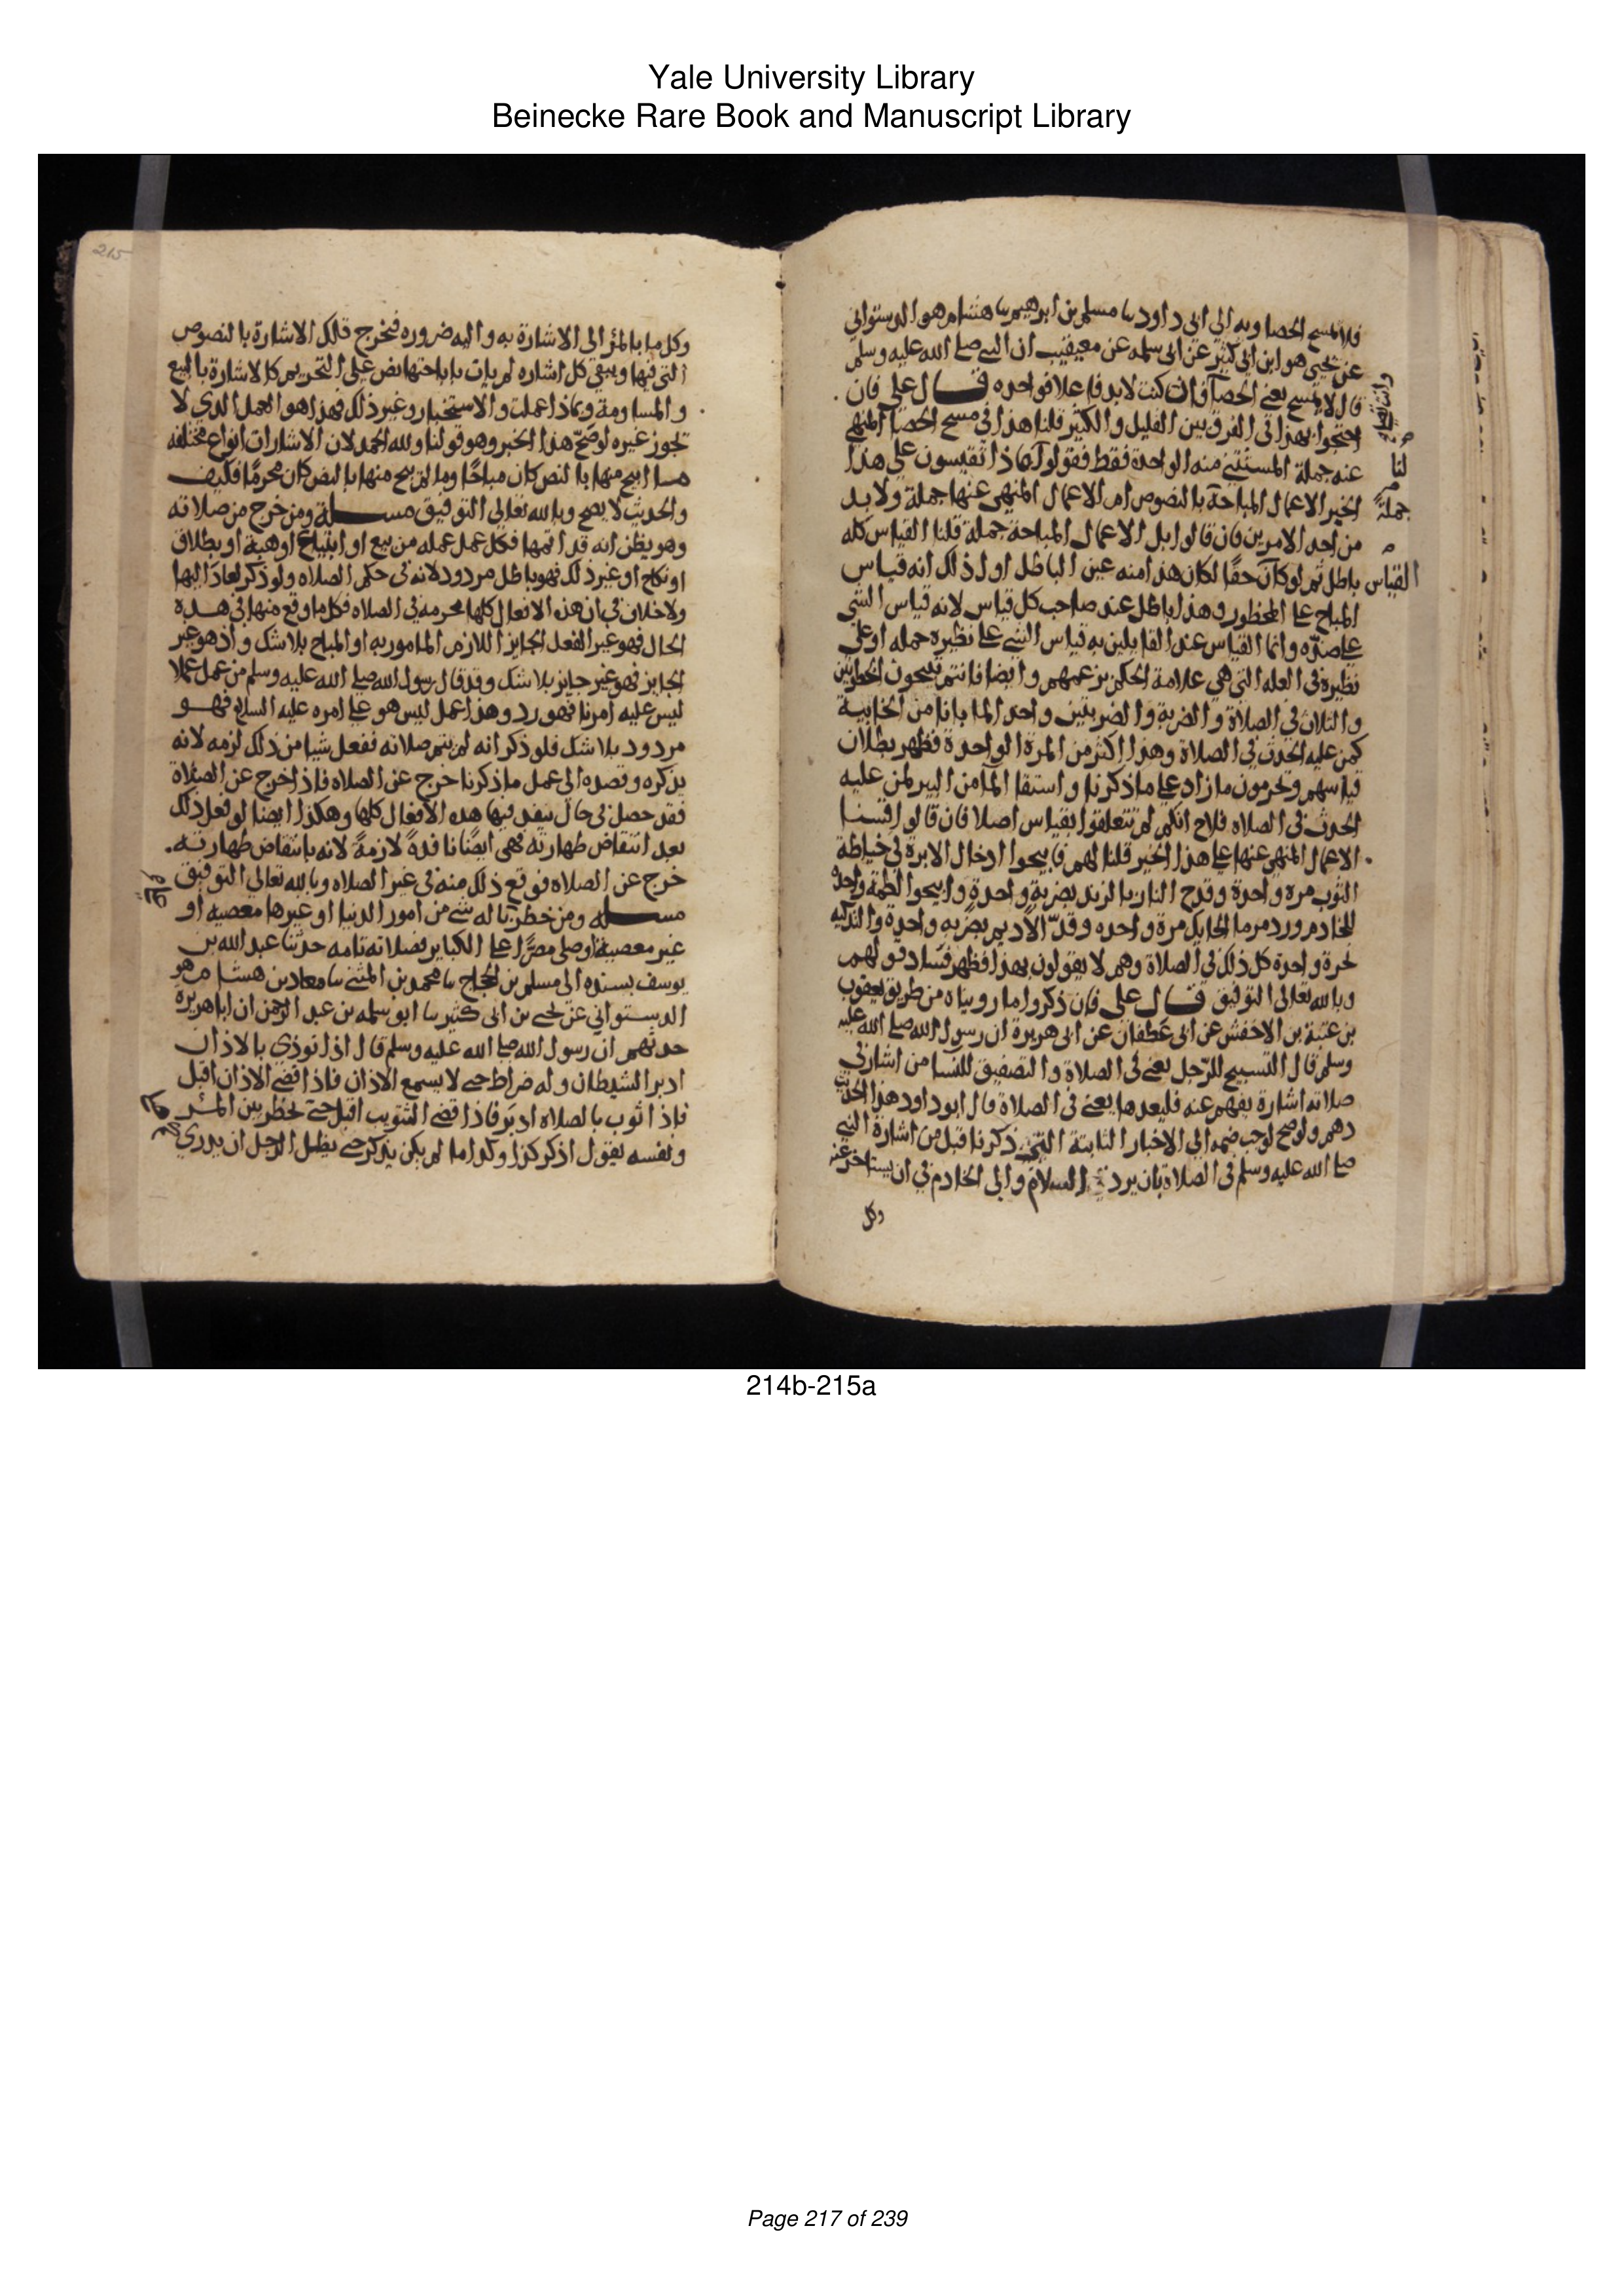 Yale University Library
Beinecke Rare Book and Manuscript Library
فلا يمسح الحصا وبه الى ابى داود نا مسلم بن ابرهيم نا هشام هو الدستوائي
عن يحيى هو ابن ابى كثير عن ابى سلمه عن معيقيب ان النبي صلى الله عليه وسلم
قال لا تمسح يعنى الحصا فان كنت لابد فاعلا فواحده قال على فان
احتجوا بهذا فى الفرق بين القليل والكثير قلنا هذا فى مسح الحصا المنهى
عنه جملة المستثنى منه الواحدة فقط فقولوا لنا ماذا تقيسون على هذا
الخبر الاعمال المباحة بالنصوص ام الاعمال المنهى عنها جملة ولابد
جملة
من احد الامرين فان قالوا بل الاعمال المباحة جملة قلنا القياس كله
باطل ثم لو كان حقا لكان هذا منه عين الباطل اول ذلك انه قياس
القياس
المباح على المحظور وهذا باطل عند صاحب كل قياس لانه قياس الشى
على ضده وانما القياس عند القايلين به قياس الشى على نظيره جمله او على
نظيره فى العله التى هى علامة الحكم بزعمهم وايضا فانتم تبيحون الخطوتين
والثلاث فى الصلاة والضربة والضربتين واخذ الما بانا من الخابية
لمن عليه الحدث فى الصلاة وهذا اكثر من المرة الواحدة فظهر بطلان
قياسهم وتحرمون ما زاد على ما ذكرنا واستقا الما من البير لمن عليه
الحدث فى الصلاه فلاح انكم لم تتعلقوا بقياس اصلا فان قالوا قسنا
الاعمال المنهى عنها على هذا الخبر قلنا لهم فابيحوا ادخال الابرة فى خياطة
الثوب مره واحدة وقدح النار بالزند بضربة واحدة وابيحوا لطمة واحدة
للخادم ورد مرما الحايك مرة واحده وقد الاديم بضربه واحدة والتذكيه
بحزة واحدة كل ذلك فى الصلاة وهم لا يقولون بهذا فظهر فساد قولهم
وبالله تعالى التوفيق قال على فان ذكروا ما رويناه من طريق يعقوب
بن عتبة بن الاخنس عن ابى غطفان عن ابى هريرة ان رسول الله صلى الله عليه
وسلم قال التسبيح للرجل يعنى فى الصلاة والتصفيق للنسا من اشار فى
صلاته اشارة يفهم عنه فليعدها يعنى فى الصلاة قال ابو داود هذا الحديث
وهم ولو صح لوجب ضمه الى الاخبار الثابتة التى ذكرنا قبل من اشارة النبى
صلى الله عليه وسلم فى الصلاة بان يرد السلام والى الخادم فى ان يستاخر عنه
وكل
215
وكل ما بالمرء الى الاشارة به واليه ضروره فتخرج تلك الاشارة بالنصوص
التى فيها ويبقى كل اشاره لم يات باباحتها نص على التحريم كالاشارة بالبيع
والمساومة وبماذا عملت والاستخبار وغير ذلك فهذا هو العمل الذى لا
يجوز غيره لو صح هذا الخبر وهو قولنا ولله الحمد لان الاشارات انواع مختلفه
ما ابيح منها بالنص كان مباحا وما لم يبح منها بالنص كان محرما فكيف
والحديث لا يصح وبالله تعالى التوفيق مسلة ومن خرج من صلاته
وهو يظن انه قد اتمها فكل عمل عمله من بيع او ابتياع او هبة او بطلاق
او نكاح او غير ذلك فهو باطل مردود لانه فى حكم الصلاه ولو ذكر لعاد اليها
ولا خلاف فى ان هذه الافعال كلها محرمه فى الصلاه فكل ما وقع منها فى هذه
الحال فهو غير الفعل الجايز اللازم المامور به او المباح بلا شك واذ هو غير
الجايز فهو غير جايز بلا شك وقد قال رسول الله صلى الله عليه وسلم من عمل عملا
ليس عليه امرنا فهو رد وهذا عمل ليس هو على امره عليه السلام فهو
مردود بلا شك فلو ذكر انه لم يتم صلاته ففعل شيا من ذلك لزمه لانه
بذكره وقصده الى عمل ما ذكرنا خرج عن الصلاه فاذا خرج عن الصلاة
فقد حصل فى حال تنفذ فيها هذه الافعال كلها وهكذا ايضا لو فعل ذلك
بعد انتقاض طهارته فهى ايضا نافذة لازمة لانه بانتقاض طهارته
خرج عن الصلاه فوقع ذلك منه فى غير الصلاه وبالله تعالى التوفيق
مسله ومن خطر بباله شى من امور الدنيا او غيرها معصيه او
غير معصية او صلى مصرا على الكباير فصلاته تامه حدثنا عبد الله بن
يوسف بسنده الى مسلم بن الحجاج نا محمد بن المثنى نا معاذ بن هشام هو
الدستوائي عن يحيى بن ابى كثير نا ابو سلمه بن عبد الرحمن ان ابا هريره
حدثهم ان رسول الله صلى الله عليه وسلم قال اذا نودي بالاذان
ادبر الشيطان وله ضراط حتى لا يسمع الاذان فاذا قضى الاذان اقبل
فاذا ثوب بالصلاه ادبر فاذا قضى التثويب اقبل حتى يخطر بين المرء
ونفسه يقول اذكر كذا وكذا لما لم يكن يذكر حتى يظل الرجل ان يدري
214b-215a
Page 217 of 239